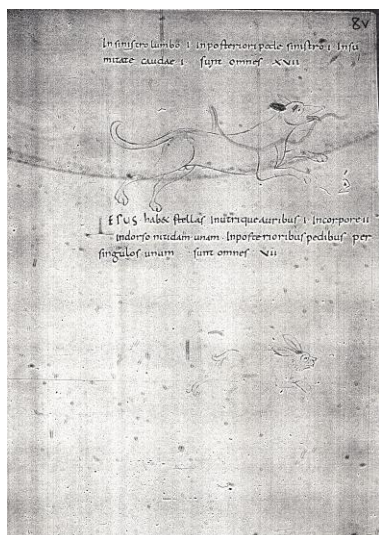 8v
In sinistro lumbo I in posteriori pede sinistro I In su
mitate caudae I sunt omnes XVII
LEPUS habet stellas In utrisque auribus I Incorpore II
Indorso nitidam unam Inposterioribus pedibus per
singulos unum sunt omnes VII